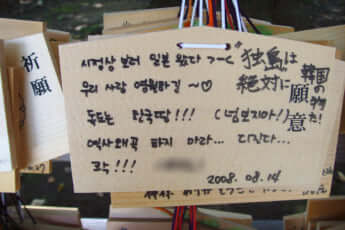 祈願
시정상 보러 일본 왔다 ㄱ-(
우리 사랑 영원하길 ~♡
독도는 한국땅!!! (넘보지마!)
역사왜곡 하지 마라... 다친다...
콱!!!
2008. 08. 14
独島は
絶対に
韓国の物だ!
願意